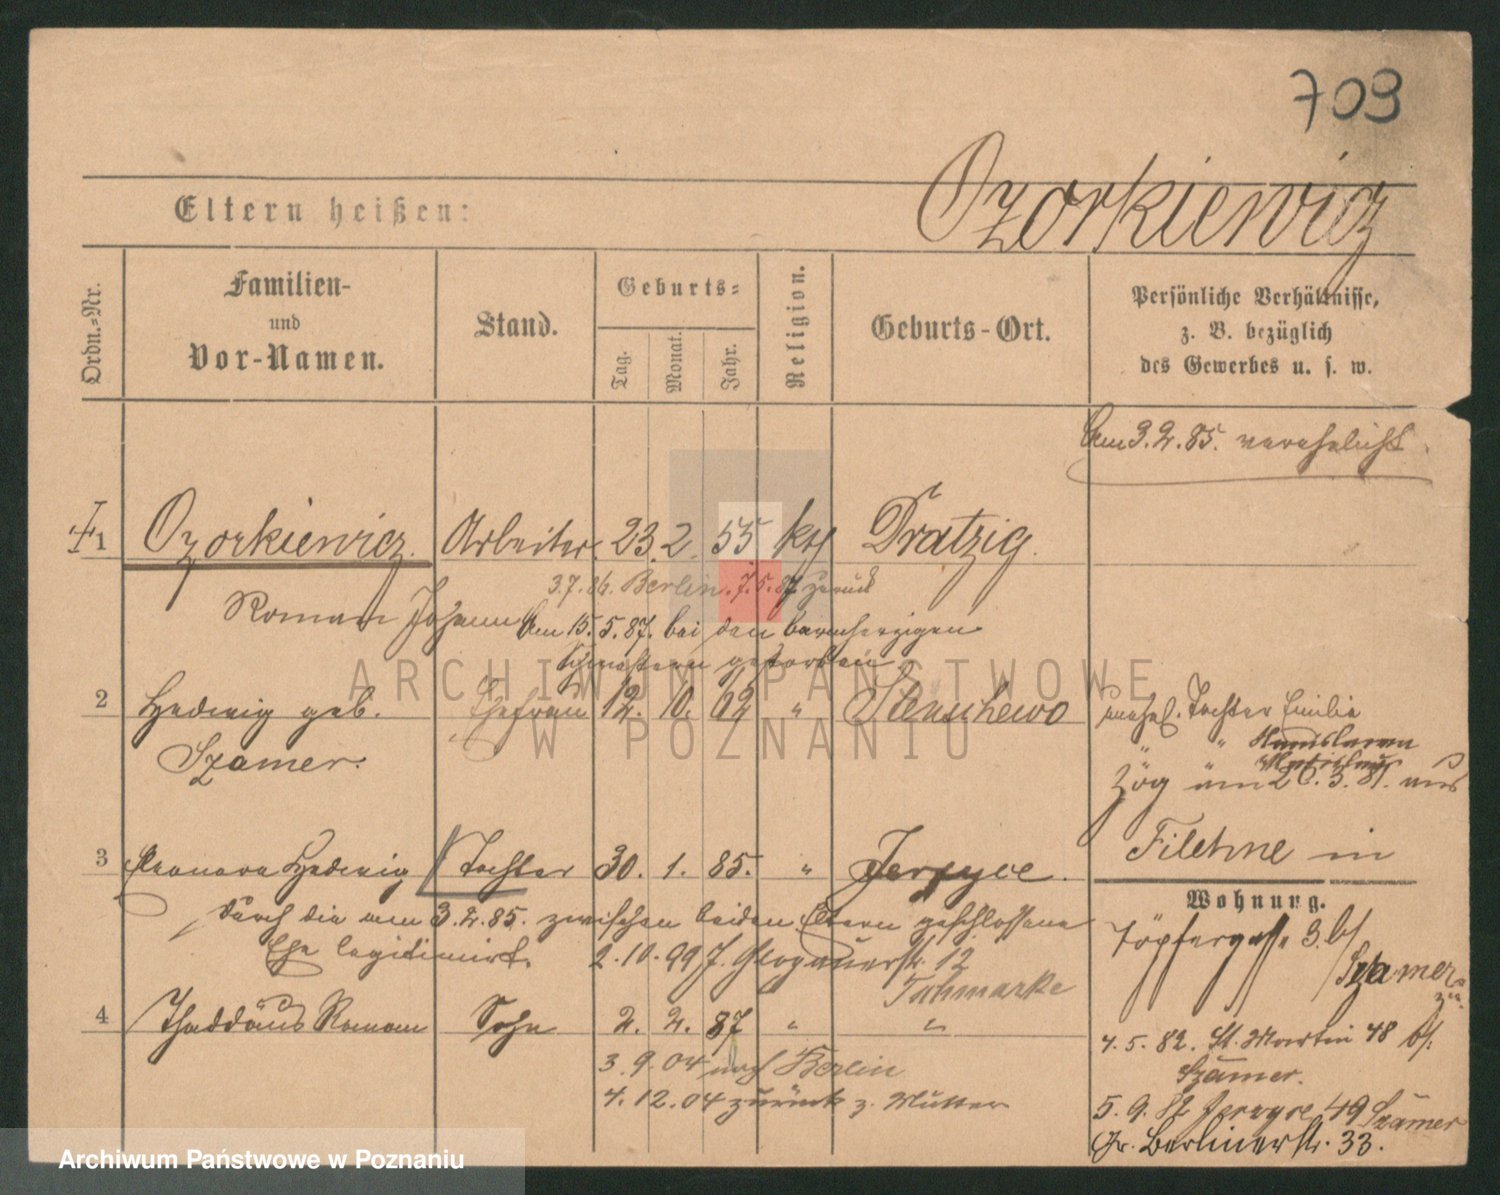 709
Ozorkiewicz
Eltern heißen:
Ordn.-Nr.
Familien-
und
Vor-Namen.
Stand.
Geburts-
Tag.
Monat.
Jahr.
Religion.
Geburts-Ort.
Persönliche Verhältnisse,
z. B. bezüglich
des Gewerbes u. s. w.
Am 3.2.85. verehelicht.
1 Ozorkiewicz. Arbeiter. 23. 2. 55 kth Dratzig.
3.7.86. Berlin. 7.5.87. zurück
Roman Johann Am 15.5.87. bei den barmherzigen
Schwestern gestorben
2 Hedwig geb. Ehefrau 12. 10. 62 " Stenschewo
Szamer.
unehel. Tochter Emilie
" "
Zög am 26.3.81. aus
Filehne in
3 Eleonora Hedwig Tochter 30. 1. 85. " Jerzyce.
durch die am 3.2.85. zwischen beiden Eltern geschlossene
Ehe legitimirt. 2.10.99 Glogauerstr. 12
4 Thaddäus Roman Sohn 2. 2. 87 " "
3.9.04 nach Berlin
4.12.04 zurück z. Mutter
Wohnung.
Töpfergasse 3. b/
Szamer
4.5.82. St. Martin 48 b/.
Szamer.
5.9. Jerzyce 49 Szamer
Gr. Berlinerstr. 33.
ARCHIWUM PAŃSTWOWE
W POZNANIU
Archiwum Państwowe w Poznaniu